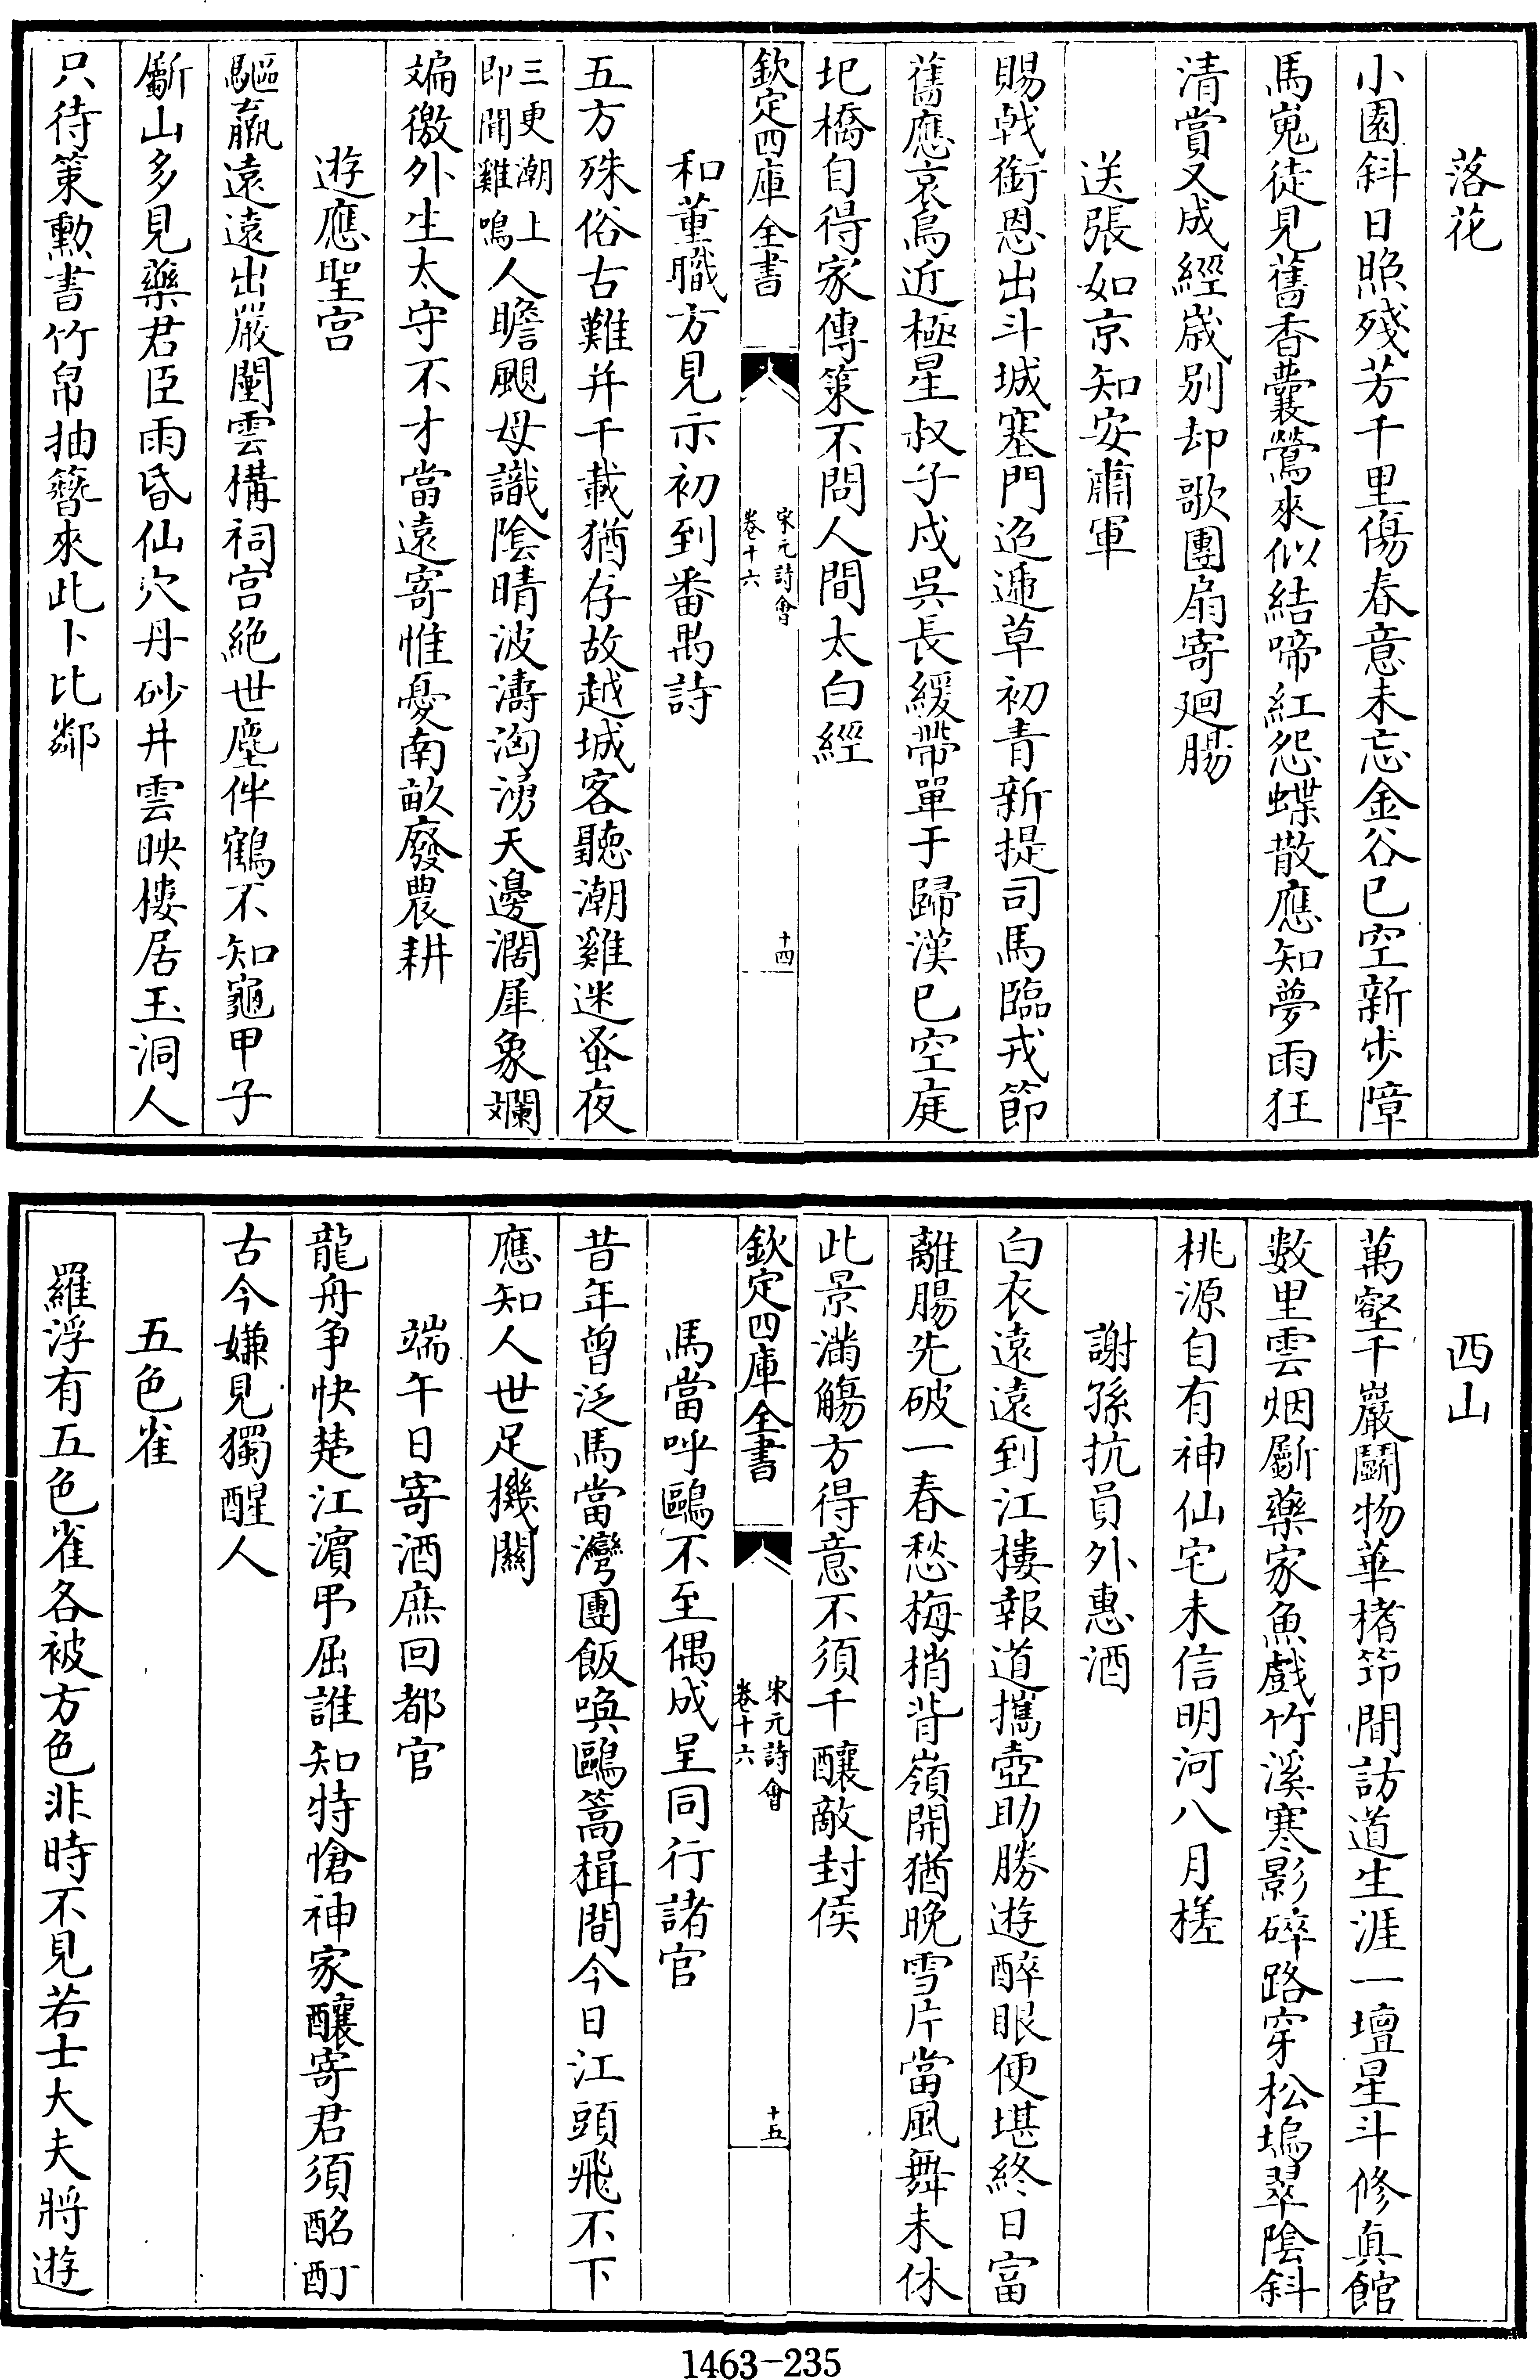 落花
小園斜日照殘芳千里傷春意未忘金谷已空新步障
馬嵬徒見舊香囊鶯來似結啼紅怨蝶散應知夢雨狂
清賞又成經歲別却歌團扇寄廻腸
送張如京知安肅軍
賜㦸銜恩出斗城塞門迢遞草初青新提司馬臨戎節
舊應哀烏近極星叔子戍吳長緩帶單于歸漢已空庭
圯橋自得家傳策不問人間太白經
欽定四庫全書
宋元詩會
卷十六
十四
和董職方見示初到番禺詩
五方殊俗古難并千載猶存故越城客聽潮雞迷蚤夜
三更潮上
即聞雞鳴
人瞻颶母識陰晴波濤洶湧天邊濶犀象斕
斒徼外生太守不才當遠寄惟憂南畝廢農耕
遊應聖宮
驅羸遠遠出嚴闉雲構祠宮絶世塵伴鶴不知龜甲子
斸山多見藥君臣雨昏仙穴丹砂井雲映樓居玉洞人
只待策勲書竹帛抽簪來此卜比鄰
西山
萬壑千巖鬬物華楮筇閒訪道生涯一壇星斗修真館
數里雲烟斸藥家魚戲竹溪寒影碎路穿松塢翠陰斜
桃源自有神仙宅未信明河八月槎
謝孫抗員外惠酒
白衣遠遠到江樓報道攜壺助勝遊醉眼便堪終日富
離腸先破一春愁梅梢背嶺開猶晚雪片當風舞未休
此景滿觴方得意不須千釀敵封侯
欽定四庫全書
宋元詩會
卷十六
十五
馬當呼鷗不至偶成呈同行諸官
昔年曾泛馬當灣團飯喚鷗篙楫間今日江頭飛不下
應知人世足機關
端午日寄酒庶回都官
龍舟争快楚江濵弔屈誰知特愴神家釀寄君須酩酊
古今嫌見獨醒人
五色雀
羅浮有五色雀各被方色非時不見若士大夫將遊
1463-235